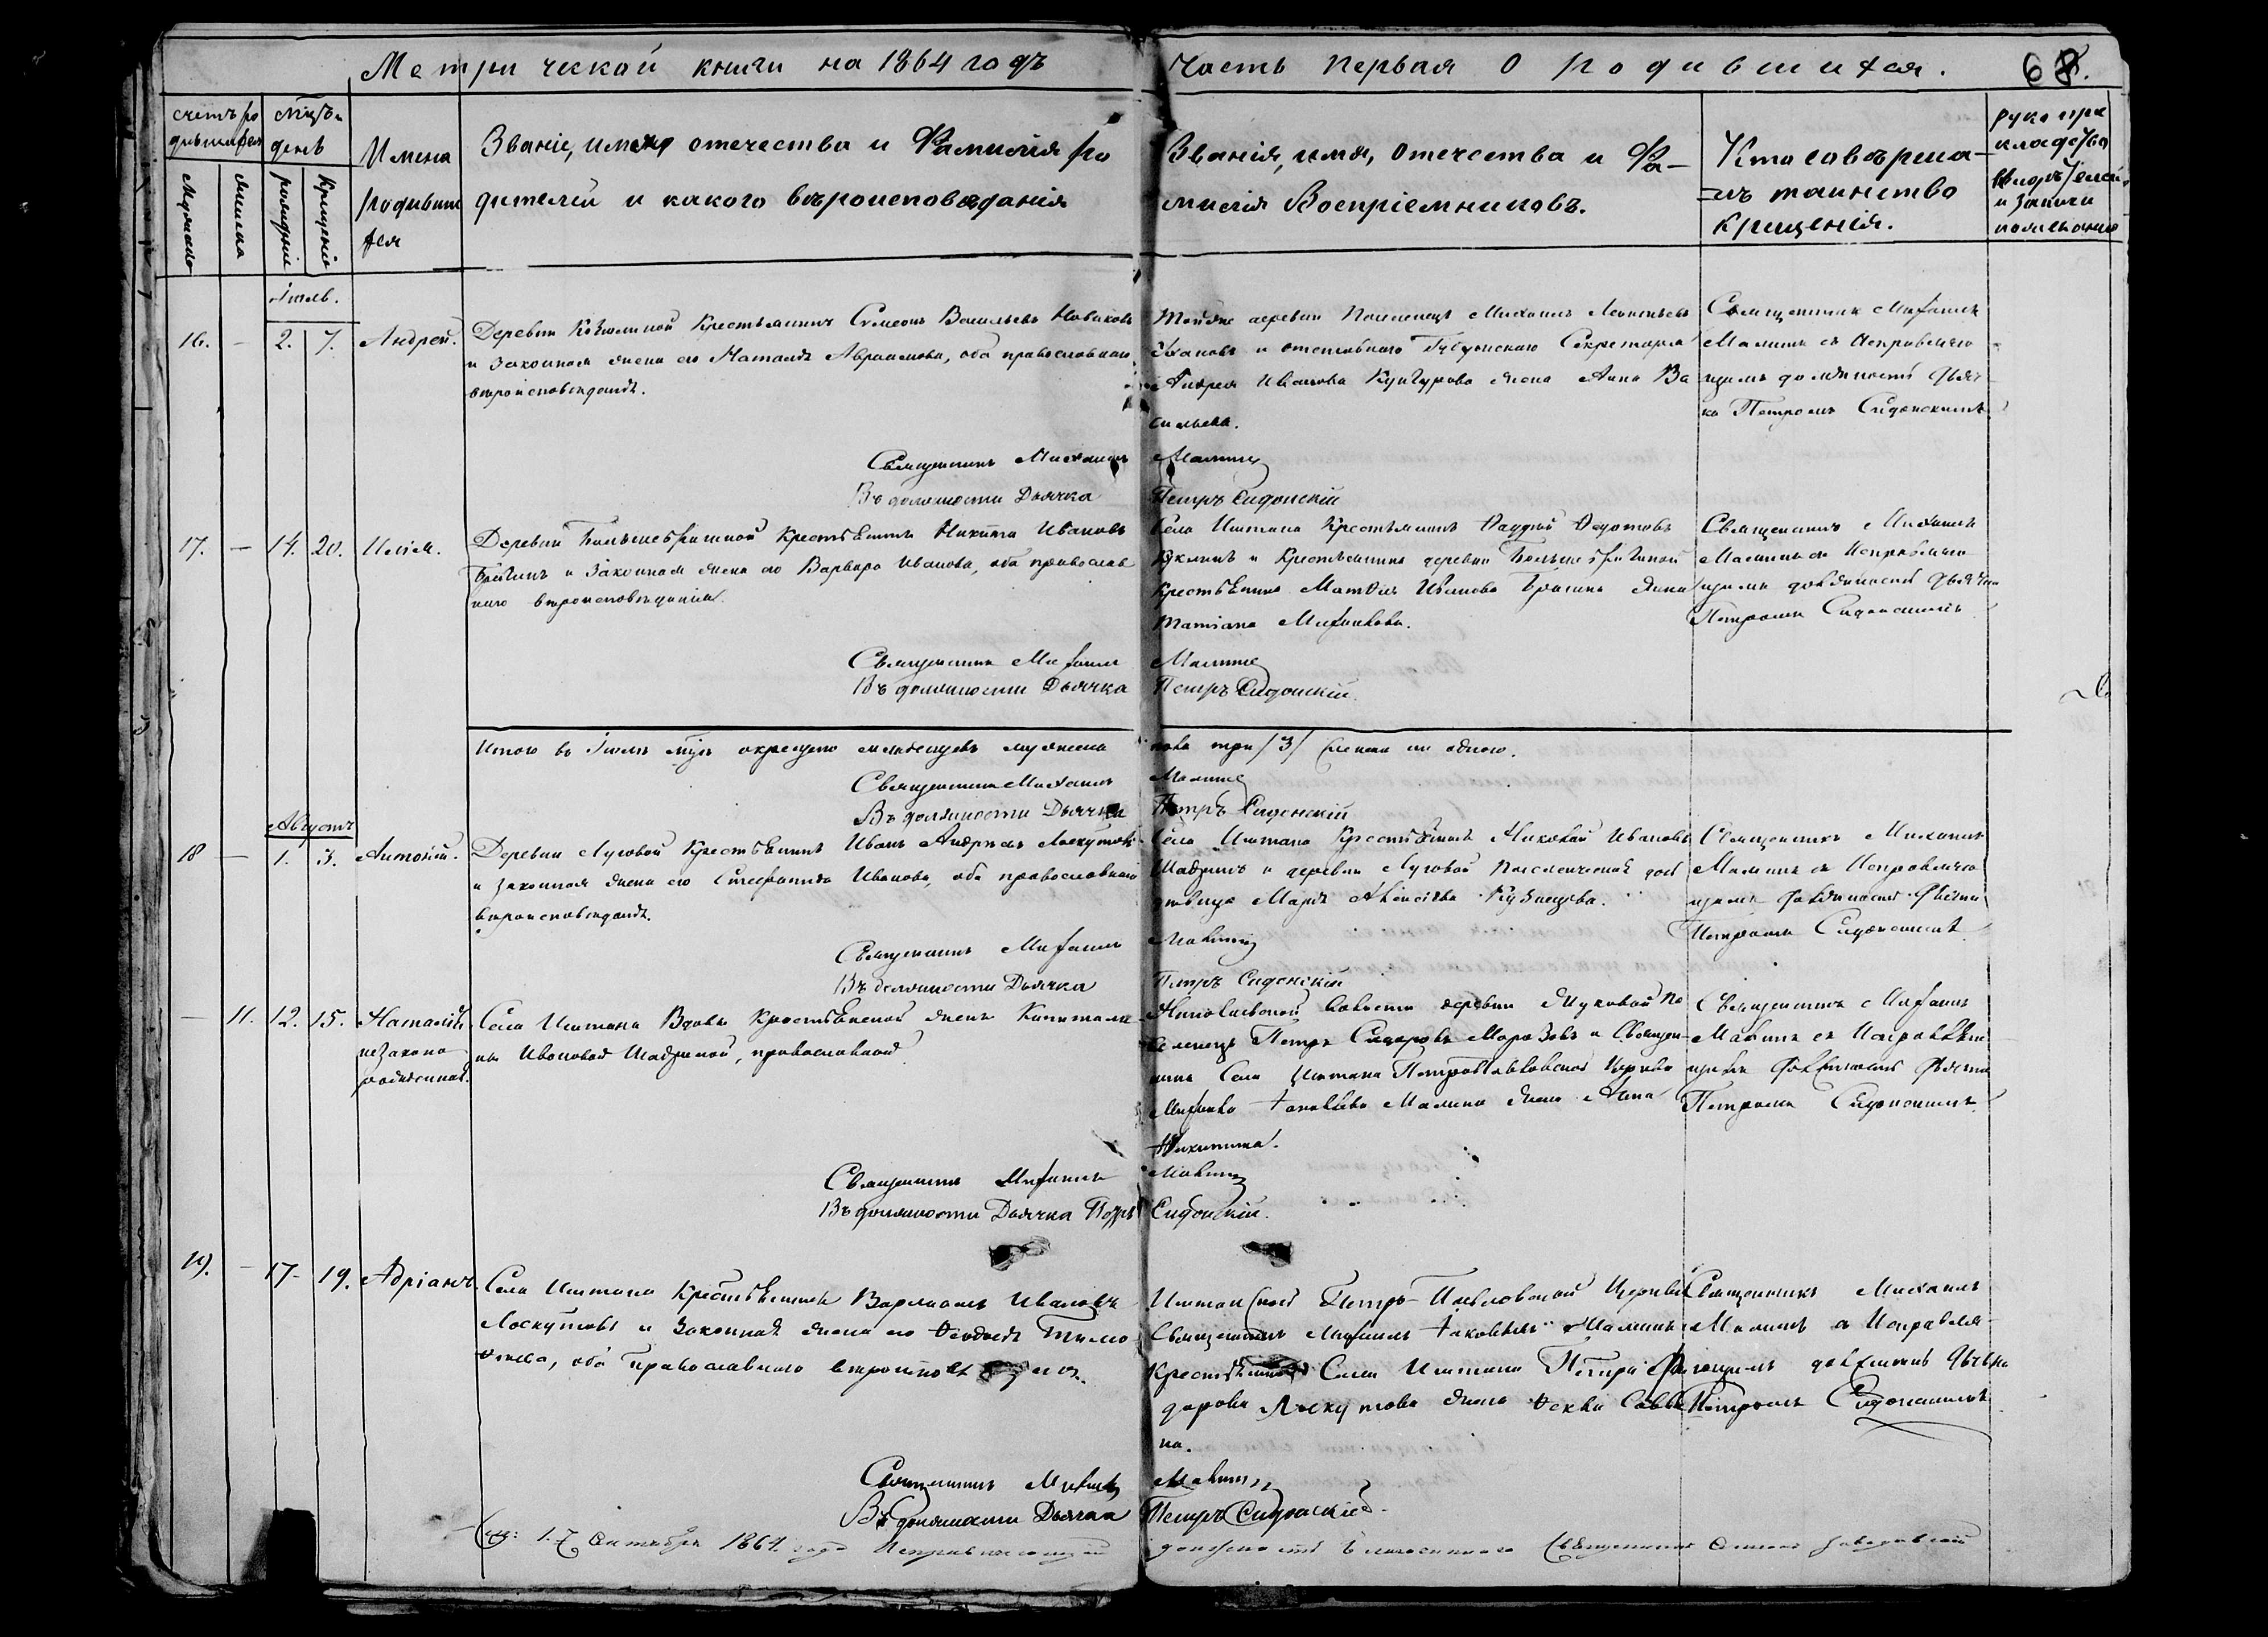 Метрической книги на 1864 годъ
Часть первая о родившихся.
68.
счетъ ро
дившихся
мцъ и
день
Мужеска
женска
рожденія
крещенія
Имена
родивши
хся
Званіе, имя, отечество и Фамилія ро
дителей и какого вѣроисповѣданія
Званія, имя, отечество и Фа-
милія Воспріемниковъ.
Кто совѣрша-
лъ таинство
крещенія.
Іюль.
16. - 2. 7. Андрей.
Деревни крестьянинъ Симеонъ Васильевъ Новиковъ
и законная жена его Наталья Авраамова, оба православнаго
вѣроисповѣданія.
Тойже деревни Поселенецъ Михаилъ Леонтьевъ
Ивановъ и отставнаго Губернскаго Секретаря
Андрея Иванова Кунгурова жена Анна Ва
сильева.
Священникъ Михаилъ
Малинъ съ Исправляю
щимъ должность дьяч
ка Петромъ Сидонскимъ.
Священникъ Михаилъ Малинъ
Въ должности Дьячка Петръ Сидонскій
17. — 14. 20. Илія.
Деревни крестьянинъ Никита Ивановъ
и законная жена его Варвара Иванова, оба православ
наго вѣроисповѣданія.
Села Иштана Крестьянинъ
и Крестьянина деревни
крестьянина Иванова жена
Татіана Михайлова.
Священникъ Михаилъ
Малинъ съ Исправляю
щимъ должность дьячка
Петромъ Сидонскимъ
Священникъ Михаилъ Малинъ
Въ должности Дьячка Петръ Сидонскій.
Итого въ Іюлѣ мцѣ окрещено младенцевъ мужеска пола три /3/ женска ни одного.
Священникъ Михаилъ Малинъ
Въ должности Дьячка Петръ Сидонскій
Августъ
18 — 1. 3. Антоній.
Деревни Луговой Крестьянинъ Иванъ Андреевъ Лоскутовъ
и законная жена его Стефанида Иванова, оба православнаго
вѣроисповѣданія.
Села Иштана Крестьянинъ Николай Ивановъ
Шадринъ и деревни Луговой Поселенческая доч
дѣвица Марія Алексѣева Кузнецова.
Священникъ Михаилъ
Малинъ съ Исправляю
щимъ должность дьячка
Петромъ Сидонскимъ
Священникъ Михаилъ Малинъ
Въ должности Дьячка Петръ Сидонскій
— 11. 12. 15. Наталія
незаконо
рожденная.
Села Иштана Вдова Крестьянской жены Капитали
ны Ивановой Шадриной, православной
Николаевской волости деревни Жуковой По
селенецъ Петръ Сидоровъ Морозовъ и Священ-
ника Села Иштана Петропавловской Церкви
Михаила Іаковлева Малина жена Анна
Никитина.
Священникъ Михаилъ
Малинъ съ Исправляю
щимъ должность дьячка
Петромъ Сидонскимъ
Священникъ Михаилъ Малинъ
Въ должности Дьячка Петръ Сидонскій.
19. — 17. 19. Адріанъ.
Села Иштана Крестьянинъ Варлаамъ Ивановъ
Лоскутовъ и законная жена его Ѳеодосія Тимо
ѳѣева, оба православнаго
Иштанской Петро-Павловской Церкви
Священникъ Михаилъ Іаковлевъ Малинъ
Крестьянина Села Иштана Петра Ѳео
дорова Лоскутова жена Ѳекла Савви
на.
Священникъ Михаилъ
Малинъ съ Исправля
ющимъ должность дьячка
Петромъ Сидонскимъ
Священникъ Михаилъ Малинъ
Въ должности Дьячка Петръ Сидонскій.
Сентября 1864 года Исправляющій должность Благочиннаго Священникъ